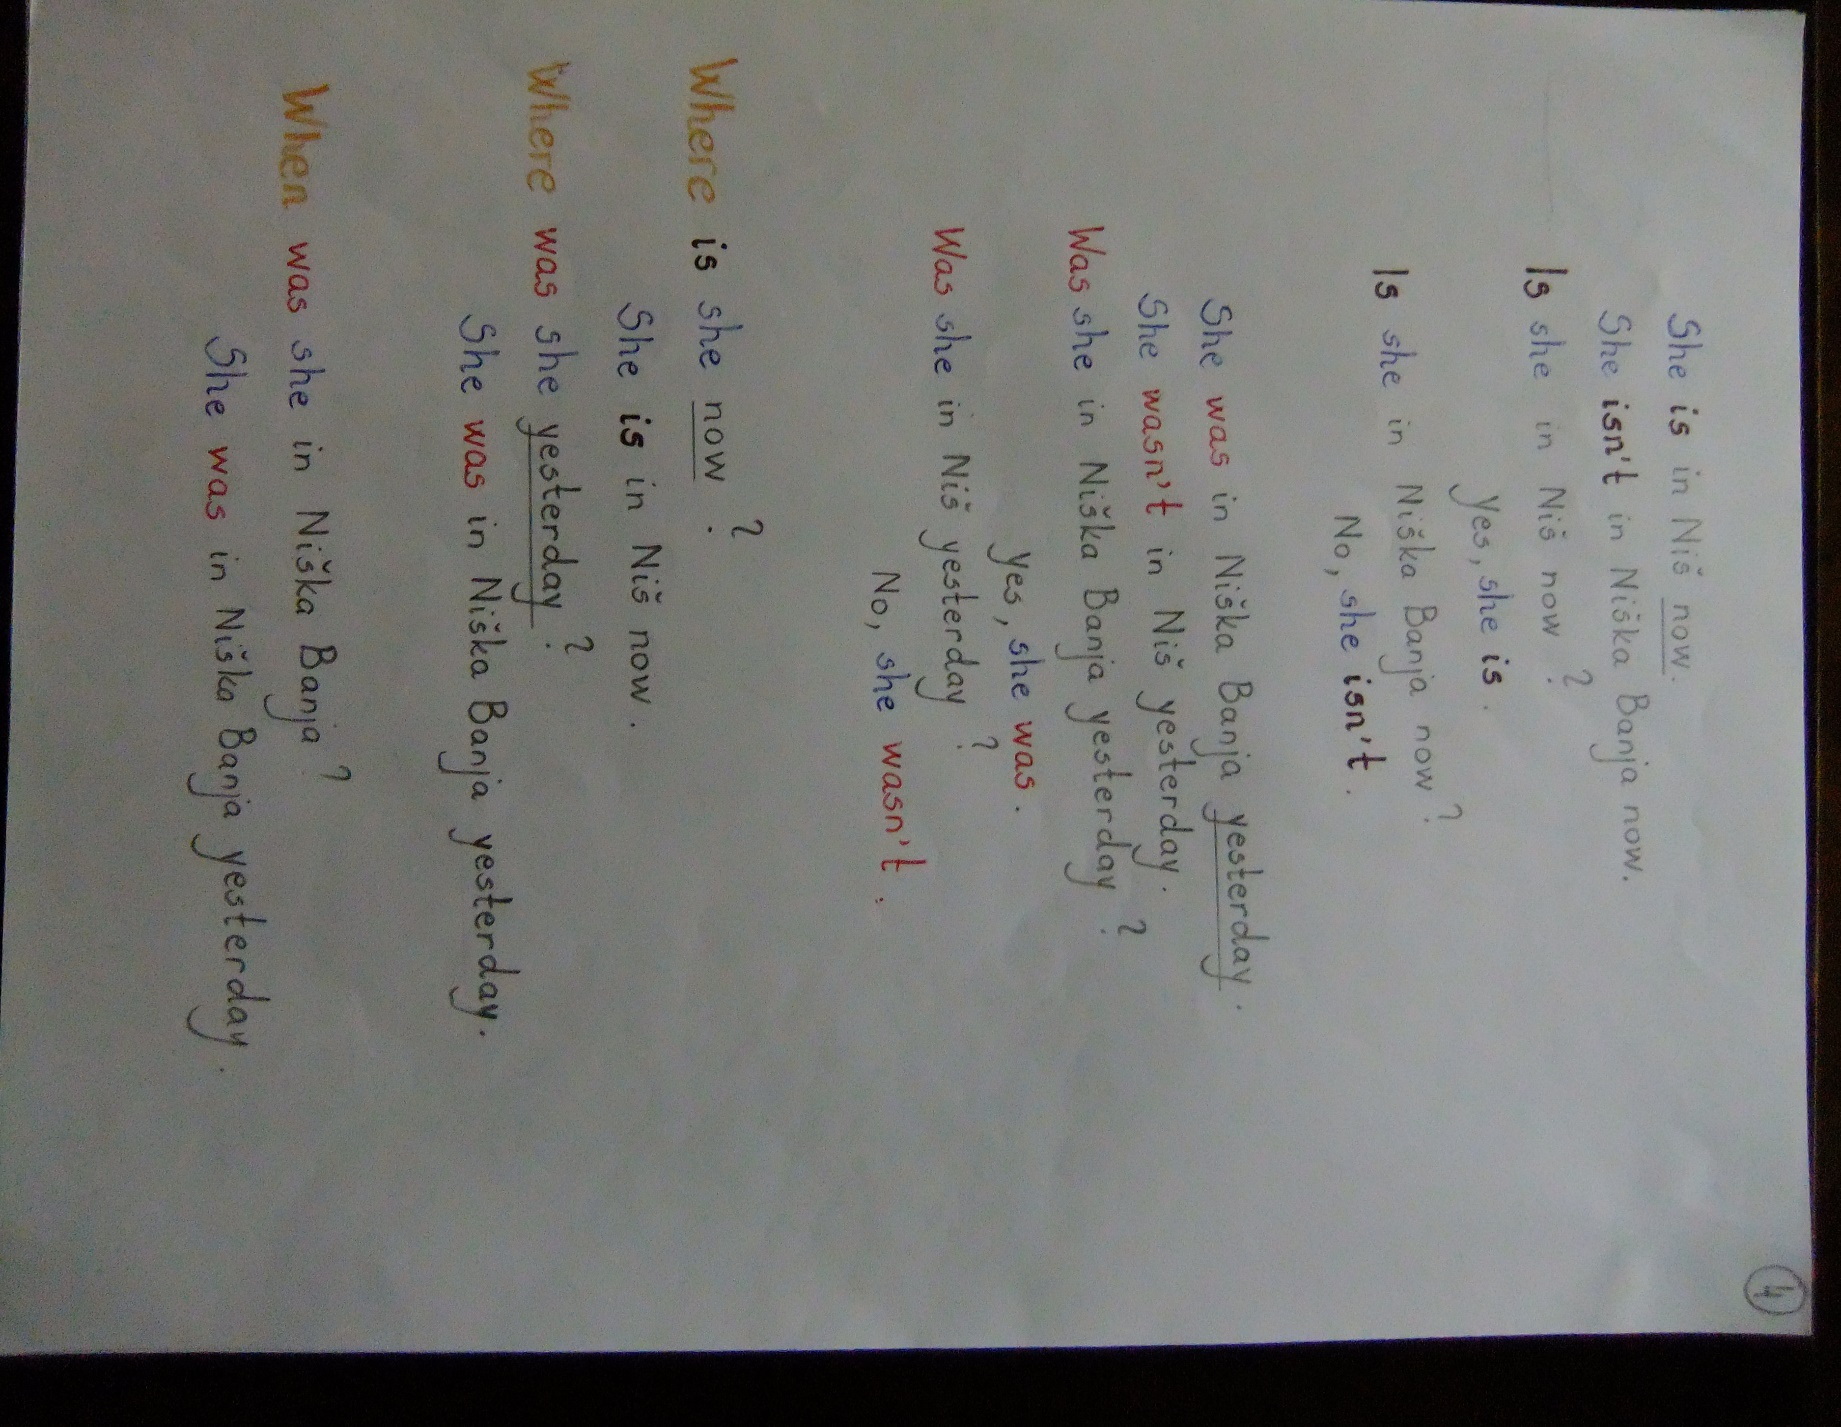 4
She is in Niš now.
She isn't in Niška Banja now.
Is she in Niš now?
Yes, she is.
Is she in Niška Banja now?
No, she isn't.
She was in Niška Banja yesterday.
She wasn't in Niš yesterday.
Was she in Niška Banja yesterday?
Yes, she was.
Was she in Niš yesterday?
No, she wasn't.
Where is she now?
She is in Niš now.
Where was she yesterday?
She was in Niška Banja yesterday.
When was she in Niška Banja?
She was in Niška Banja yesterday.